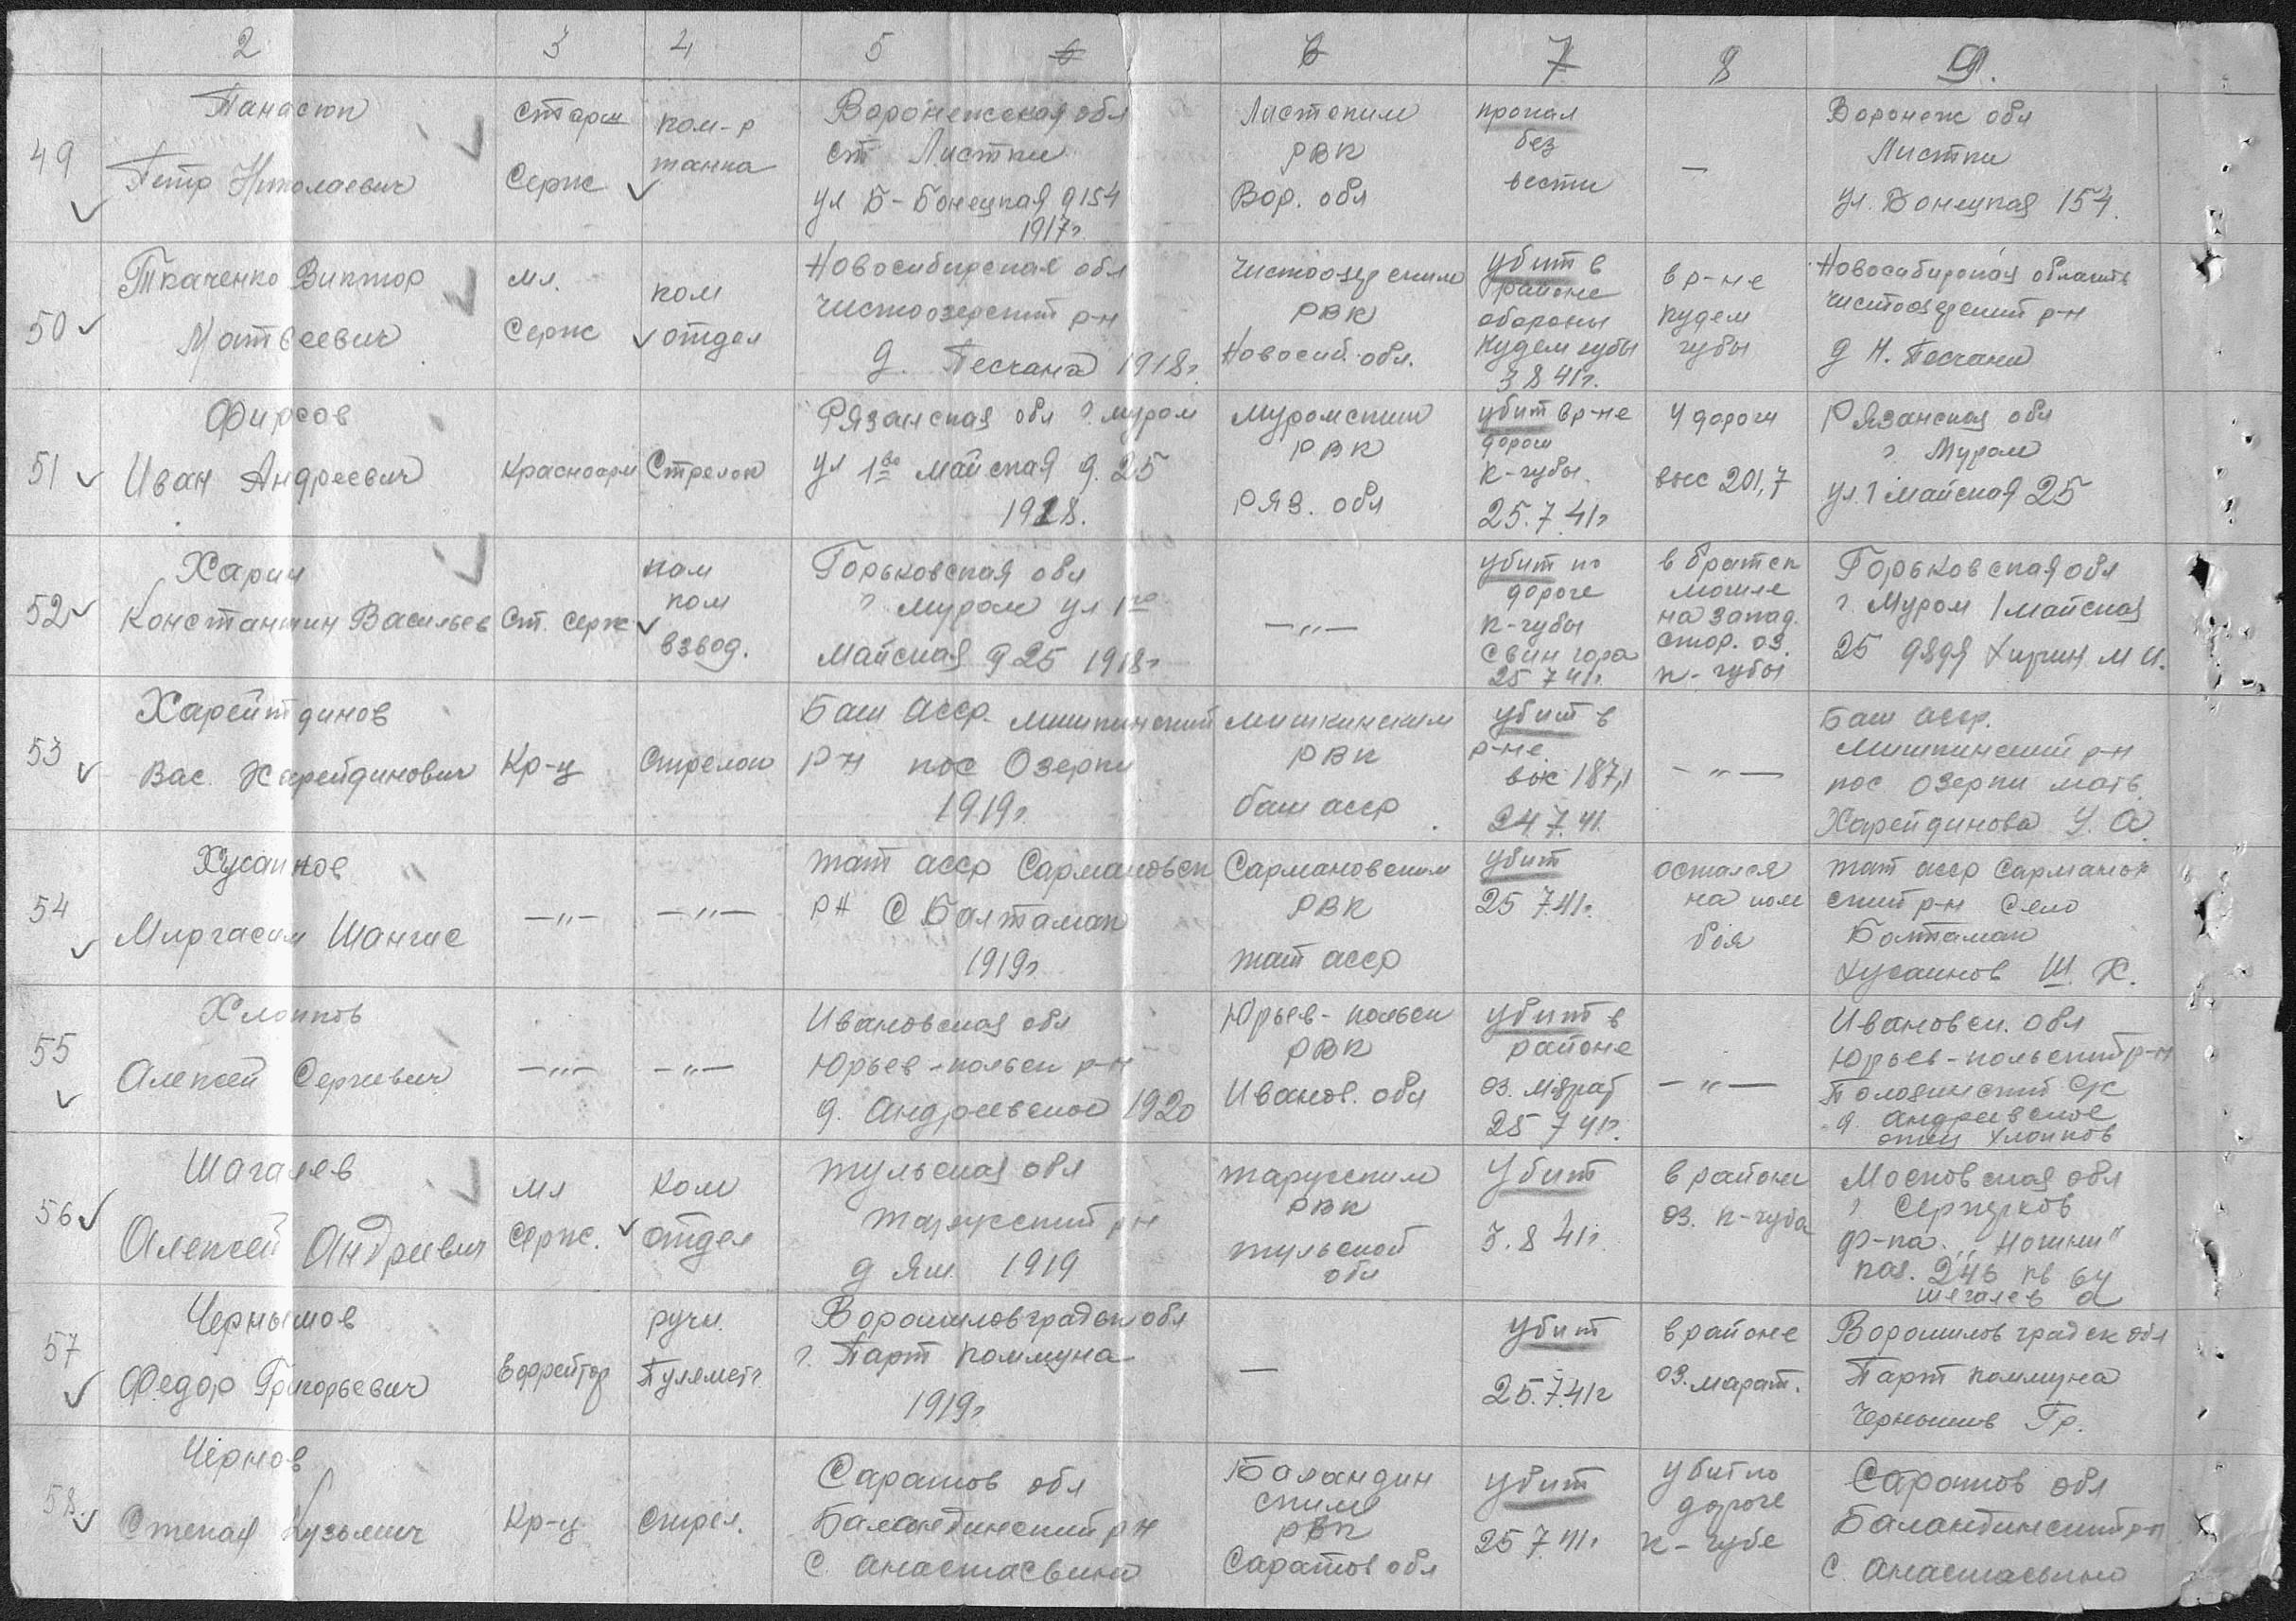 2 3 4 5 6 7 8 9.
49
Панасюк
Петр Николаевич
Старш
Серж
ком-р
танка
Воронежская обл
ст Листки
ул Б-Бонецкая д 154
1917г.
Листским
РВК
Вор. обл
пропал
без
вести
—
Воронеж обл
Листки
ул. Донецкая 154.
50
Ткаченко Виктор
Матвеевич
мл.
Серж
ком
отдел
Новосибирская обл
Чистоозерский р-н
д. Песчана 1918г.
Чистоозерским
РВК
Новосиб. обл.
убит в
районе
обороны
Кудем губы
3 8 41г.
в р-не
кудем
губы
Новосибирская область
Чистоозерский р-н
д Н. Песчана
51
Фирсов
Иван Андреевич
Красноарм
Стрелок
Рязанская обл г. Муром
ул 1во Майская д. 25
1918.
Муромским
РВК
Ряз. обл
убит в р-не
дороги
К-губы.
25.7 41г
У дороги
выс 201,7
Рязанская обл
г. Муром
ул. 1 Майская 25
52
Харин
Константин Васильев
Ст. серж
пом
ком
взвод.
Горьковская обл
г Муром ул 1го
Майская д 25 1918г
—"—
убит по
дороге
К-губы
Свин гора
25 7 41г.
в братск
могиле
на запад.
стор. оз.
К-губы
Горьковская обл
г. Муром 1 Майская
25 дядя Харин М И.
53
Харейтдинов
Вас. Харейдинович
Кр-ц
Стрелок
Баш Асср. Мишкинский
р-н пос Озерки
1919г.
Мишкинским
РВК
баш асср
убит в
р-не
выс 187,1
24.7.41.
—"—
Баш асср.
Мишкинский р-н
пос Озерки мать
Харейдинова У. А.
54
Хусаинов
Миргасим Шангис
—"—
—"—
Тат асср Сармановск
рн С Балтаман
1919г
Сармановским
РВК
Тат асср
убит
25 7.41г.
остался
на поле
боя
Тат асср Сарманов
ский р-н Село
Болтаман
Хусаинов Ш. Х.
55
Хлопков
Алексей Сергеевич
—"—
—"—
Ивановская обл
Юрьев-польск р-н
д. Андреевское 1920
Юрьев-польск
РВК
Иванов. обл
убит в
районе
оз.
25 7 41г.
—"—
Ивановск. обл
Юрьев-польский р-н
д. Андреевское
отец Хлопков
56
Шагалев
Алексей Андреевич
мл
Серж.
Ком
отдел
Тульская обл
Тарусский рн
д Ям. 1919
Тарусским
РВК
Тульской
обл
Убит
3.8 41г.
в районе
оз. К-губа
Московская обл
г Серпухов
ф-ка "Ногина"
каз. 246 кв 64
Шагалев А
57
Чернышов
Федор Григорьевич
Ефрейтор
ручн.
Пулеметч.
Ворошиловградск обл
г. Парт Коммуна
1919г.
—
убит
25.7.41г
в районе
оз. Марат.
Ворошиловградск обл
Парт Коммуна
Чернышев Гр.
58.
Чернов
Степан Кузьмич
Кр-ц
Стрел.
Саратов обл
Баландинский рн
с. Анастасьино
Баландин
ским
РВК
Саратов обл
убит
25 7.41г
убит по
дороге
К-губе
Саратов обл
Баландинский р-н
с. Анастасьино